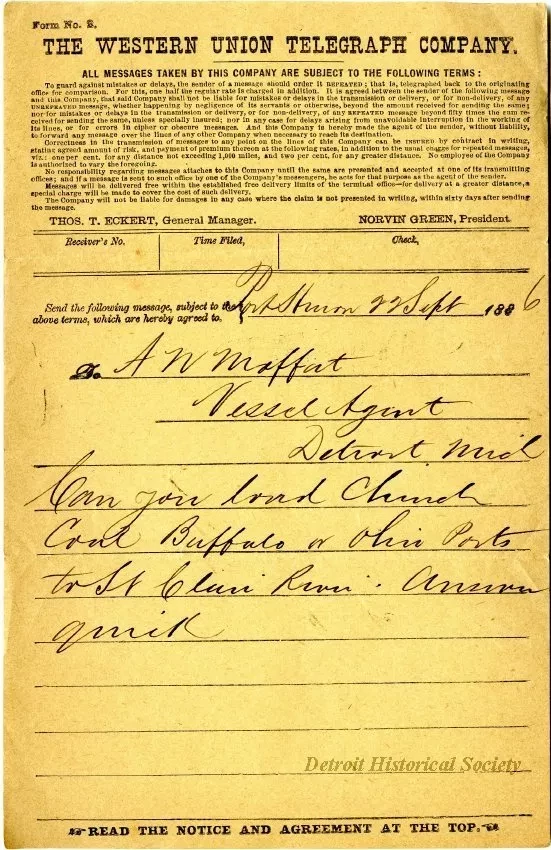 Form No. 2.
THE WESTERN UNION TELEGRAPH COMPANY.
ALL MESSAGES TAKEN BY THIS COMPANY ARE SUBJECT TO THE FOLLOWING TERMS :
To guard against mistakes or delays, the sender of a message should order it REPEATED; that is, telegraphed back to the originating
office for comparison. For this, one half the regular rate is charged in addition. It is agreed between the sender of the following message
and this Company, that said Company shall not be liable for mistakes or delays in the transmission or delivery, or for non-delivery, of any
UNREPEATED message, whether happening by negligence of its servants or otherwise, beyond the amount received for sending the same;
nor for mistakes or delays in the transmission or delivery, or for non-delivery, of any REPEATED message beyond fifty times the sum re-
ceived for sending the same, unless specially insured; nor in any case for delays arising from unavoidable interruption in the working of
its lines, or for errors in cipher or obscure messages. And this Company is hereby made the agent of the sender, without liability,
to forward any message over the lines of any other Company when necessary to reach its destination.
Correctness in the transmission of messages to any point on the lines of this Company can be INSURED by contract in writing,
stating agreed amount of risk, and payment of premium thereon at the following rates, in addition to the usual charge for repeated messages,
viz: one per cent. for any distance not exceeding 1,000 miles, and two per cent. for any greater distance. No employee of the Company
is authorized to vary the foregoing.
No responsibility regarding messages attaches to this Company until the same are presented and accepted at one of its transmitting
offices; and if a message is sent to such office by one of the Company's messengers, he acts for that purpose as the agent of the sender.
Messages will be delivered free within the established free delivery limits of the terminal office—for delivery at a greater distance, a
special charge will be made to cover the cost of such delivery.
The Company will not be liable for damages in any case where the claim is not presented in writing, within sixty days after sending
the message.
THOS. T. ECKERT, General Manager. NORVIN GREEN, President.
Receiver's No. Time Filed, Check,
Send the following message, subject to the
above terms, which are hereby agreed to.
Port Huron 22 Sept 1886
To A W Moffat
Vessel Agent
Detroit Mich
Can you load Church
Coal Buffalo or Ohio Ports
to St Clair River. Answer
quick
Detroit Historical Society
READ THE NOTICE AND AGREEMENT AT THE TOP.